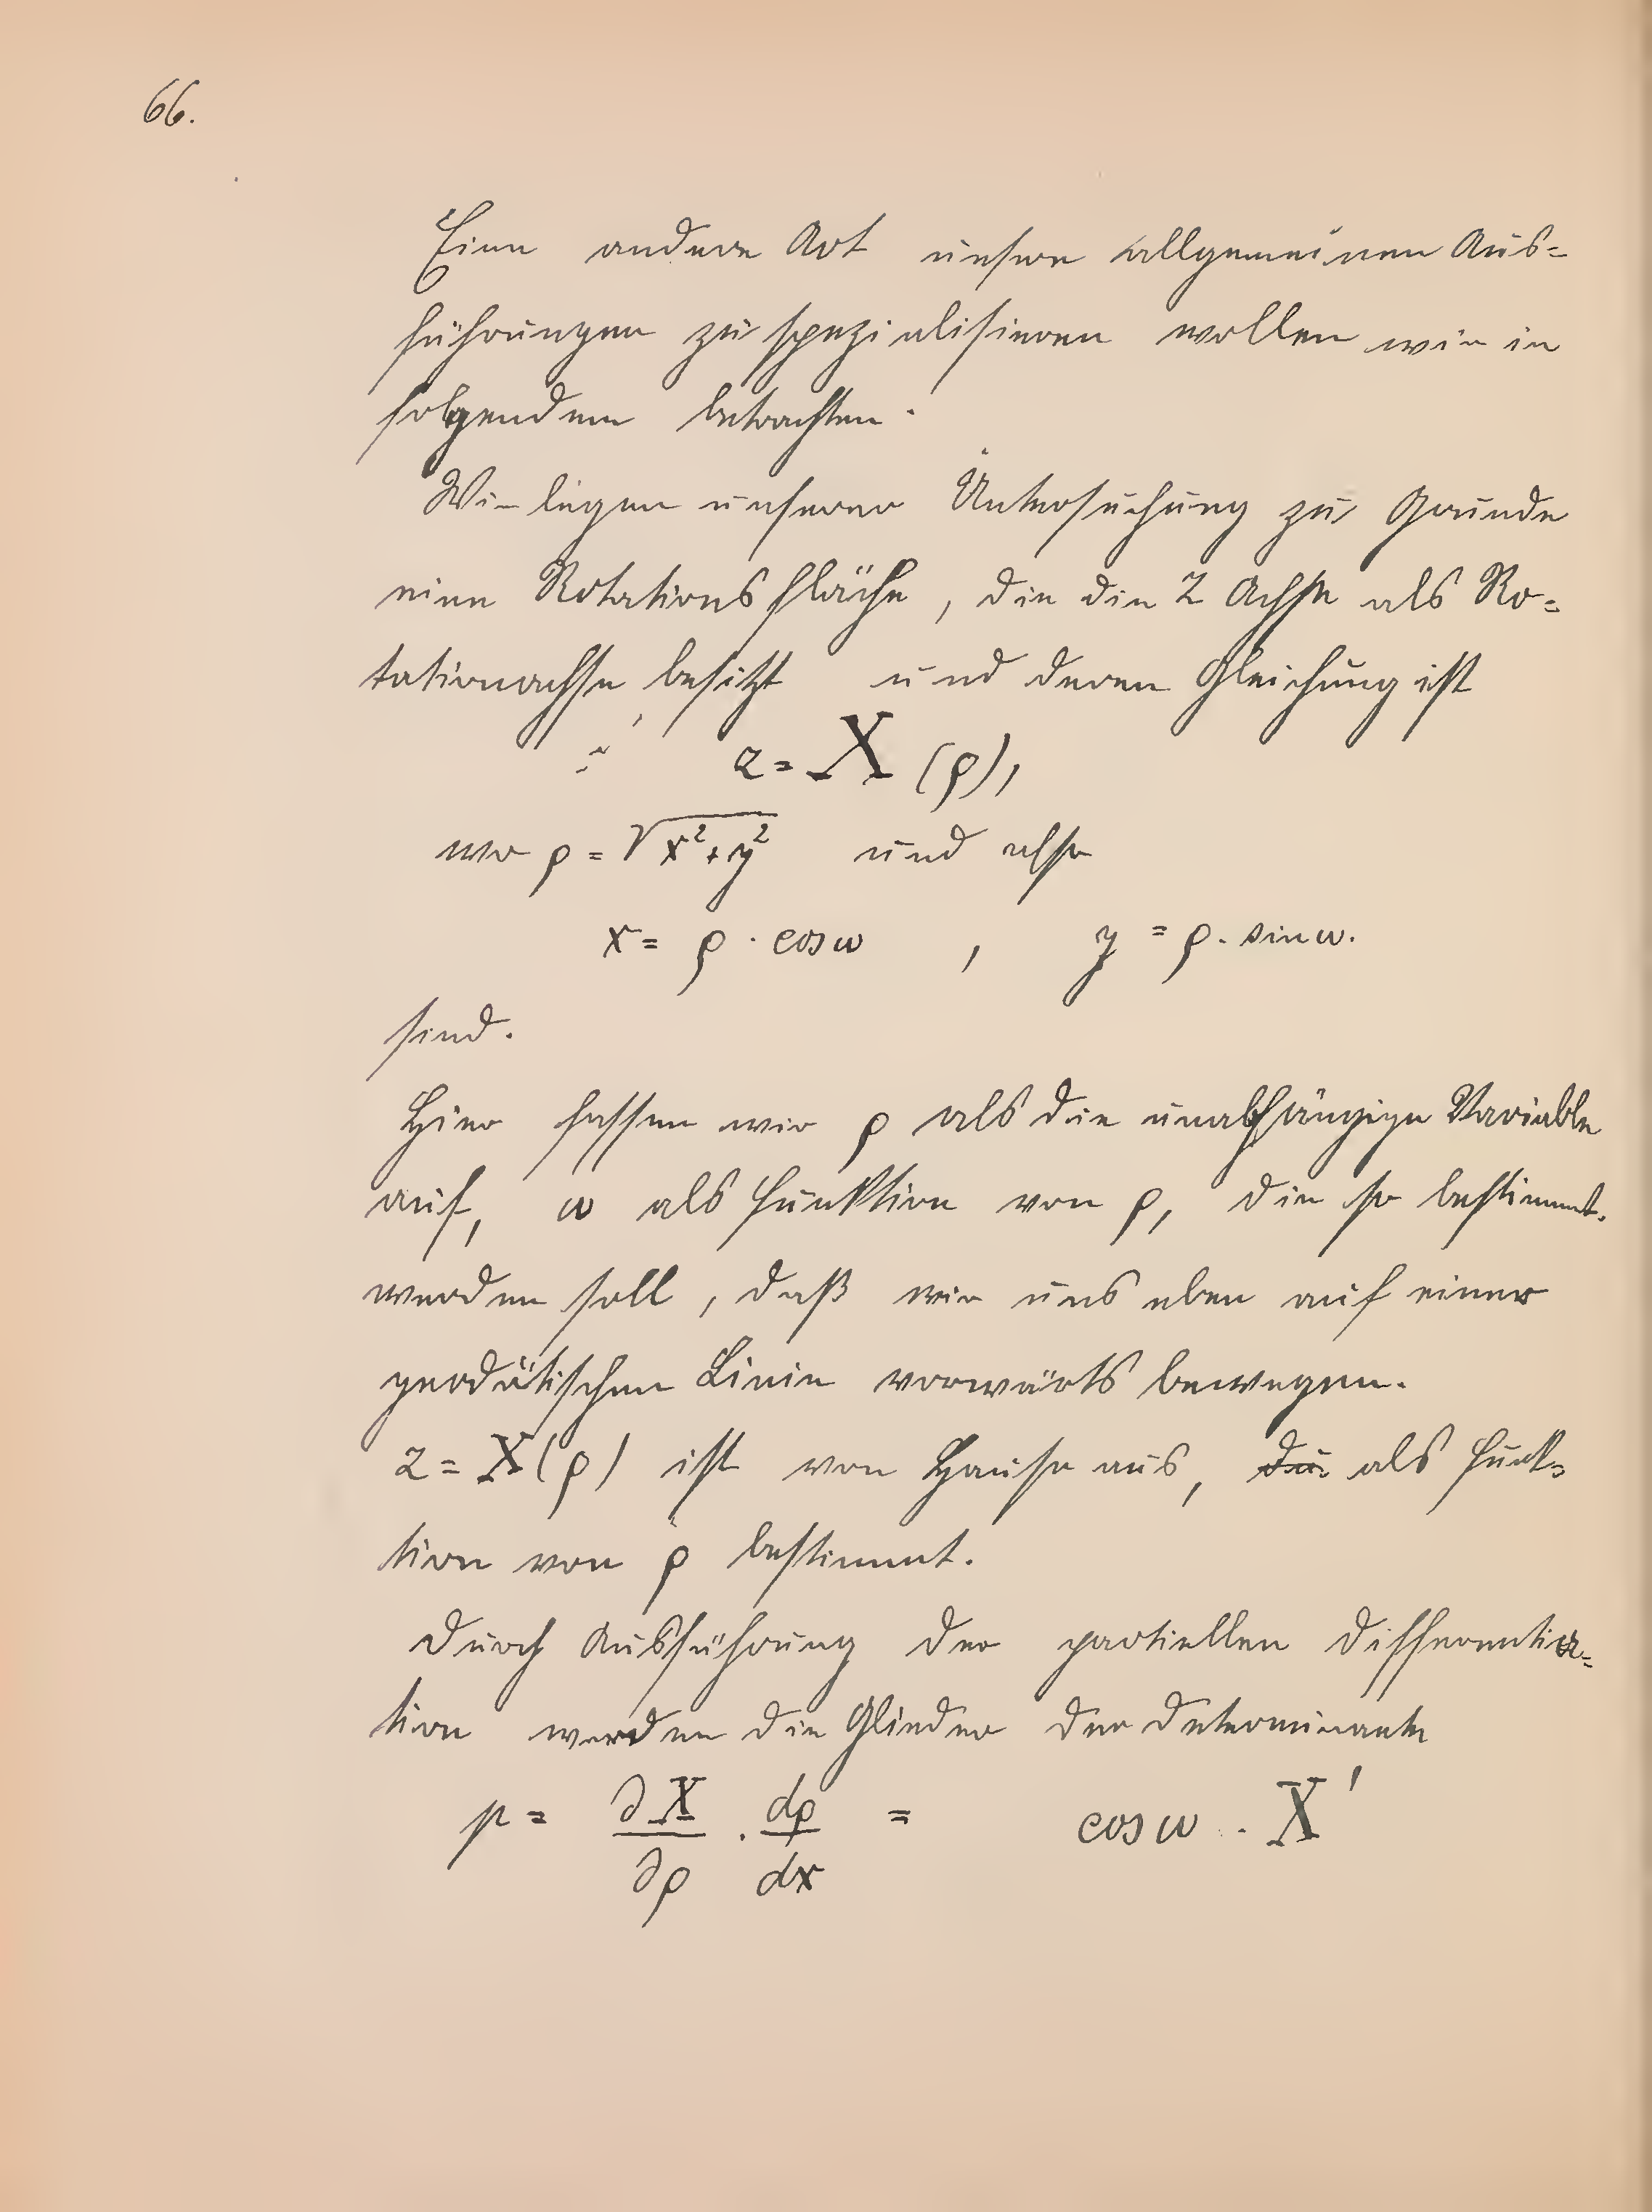 66.
Eine andere Art unsere allgemeinen Aus=
führungen zu spezialisieren wollen wir in
folgendem betrachten.
Wir legen unserer Untersuchung zu Grunde
eine Rotationsfläche, die die Z Achse als Ro=
tationachse besitzt und deren Gleichung ist
z = X (ρ),
wo ρ = √x²+y² und also
x = ρ · cos ω , y = ρ · sin ω.
sind.
Hier fassen wir ρ als die unabhängige Variable
auf, ω als Funktion von ρ, die so bestimmt
werden soll, daß wir uns eben auf einer
geodätischen Linie vorwärts bewegen.
z = X(ρ) ist von Hause aus, als Funk=
tion von ρ bestimmt.
Durch Ausführung der partiellen Differentia=
tion werden die Glieder der Determinante
p = ∂X/∂ρ · dρ/dx = cos ω · X'